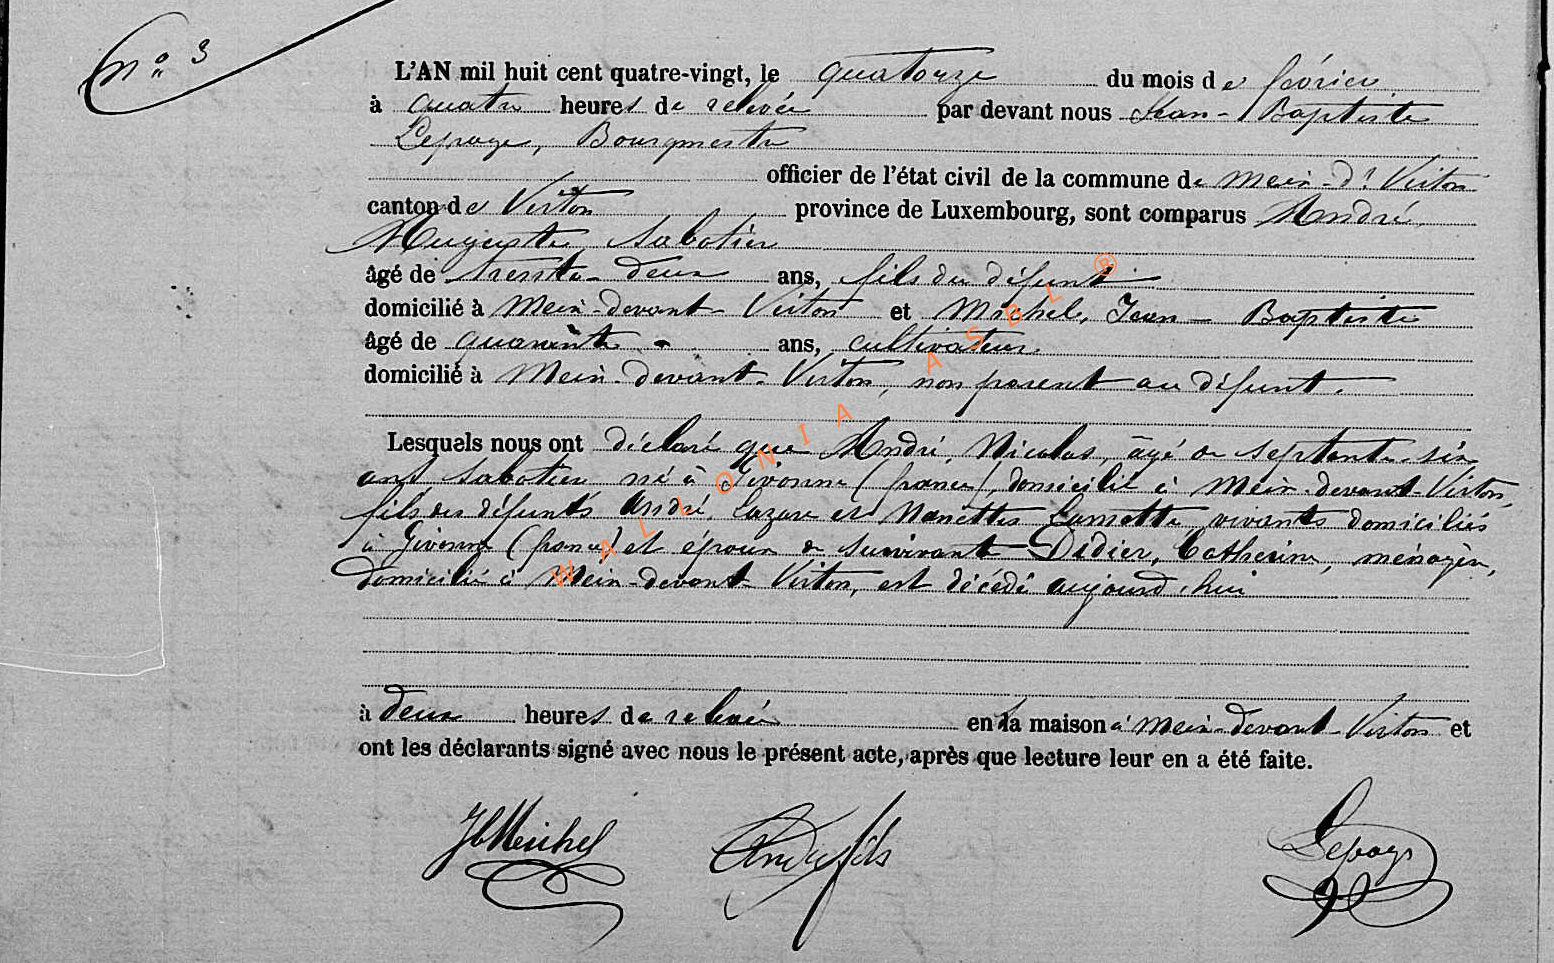 N° 3
L'AN mil huit cent quatre-vingt, le quatorze du mois de février
à quatre heures de relevée par devant nous Jean-Baptiste
Lepage, Bourgmestre
officier de l'état civil de la commune de Meix-dt Virton
canton de Virton province de Luxembourg, sont comparus André,
Auguste, Sabotier
âgé de trente-deux ans, fils du défunt
domicilié à Meix-devant-Virton et Michel, Jean-Baptiste
âgé de quarante ans, cultivateur
domicilié à Meix-devant-Virton, non parent au défunt.
Lesquels nous ont déclaré que André, Nicolas, âgé de septante-six
ans sabotier né à Givonne (france), domicilié à Meix-devant-Virton,
fils des défunts André, Lazare et Nanettes vivants domiciliés
à Givonne (france) et époux de survivant Didier, Catherine, ménagère,
domicilié à Meix-devant-Virton, est décédé aujourd'hui
à deux heures de relevée en la maison à Meix-devant-Virton et
ont les déclarants signé avec nous le présent acte, après que lecture leur en a été faite.
JBMichel André fils Lepage
WALLONIA ASBL ®